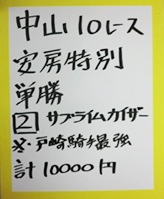 中山10レース
安房特別
単勝
2 サブライムカイザー
※戸崎騎手最強
計10000円